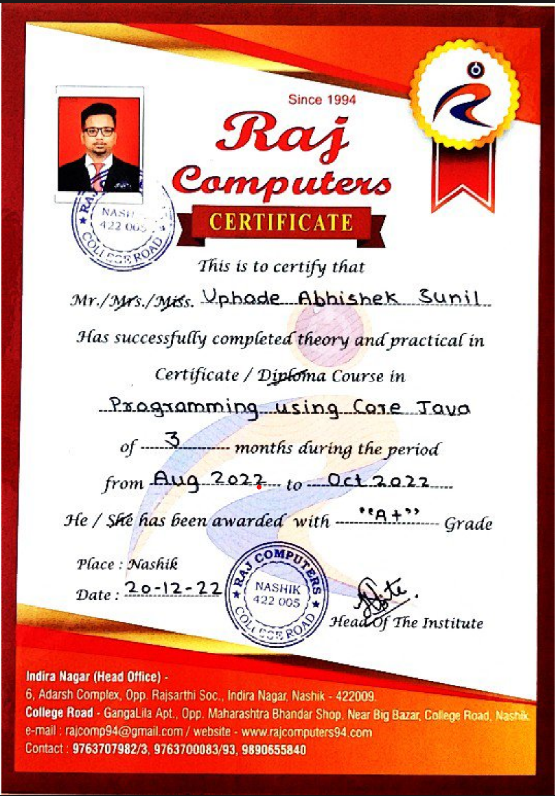 Since 1994
Raj
Computers
CERTIFICATE
NASHIK
422 005
COLLEGE ROAD
This is to certify that
Mr./Mrs./Miss. Uphade Abhishek Sunil
Has successfully completed theory and practical in
Certificate / Diploma Course in
Programming using Core Java
of 3 months during the period
from Aug 2022 to Oct 2022
He / She has been awarded with "A+" Grade
Place : Nashik
Date : 20-12-22
RAJ COMPUTERS
NASHIK
422 005
COLLEGE ROAD
Head Of The Institute
Indira Nagar (Head Office) -
6, Adarsh Complex, Opp. Rajsarthi Soc., Indira Nagar, Nashik - 422009.
College Road - GangaLila Apt., Opp. Maharashtra Bhandar Shop, Near Big Bazar, College Road, Nashik.
e-mail : rajcomp94@gmail.com / website - www.rajcomputers94.com
Contact : 9763707982/3, 9763700083/93, 9890655840